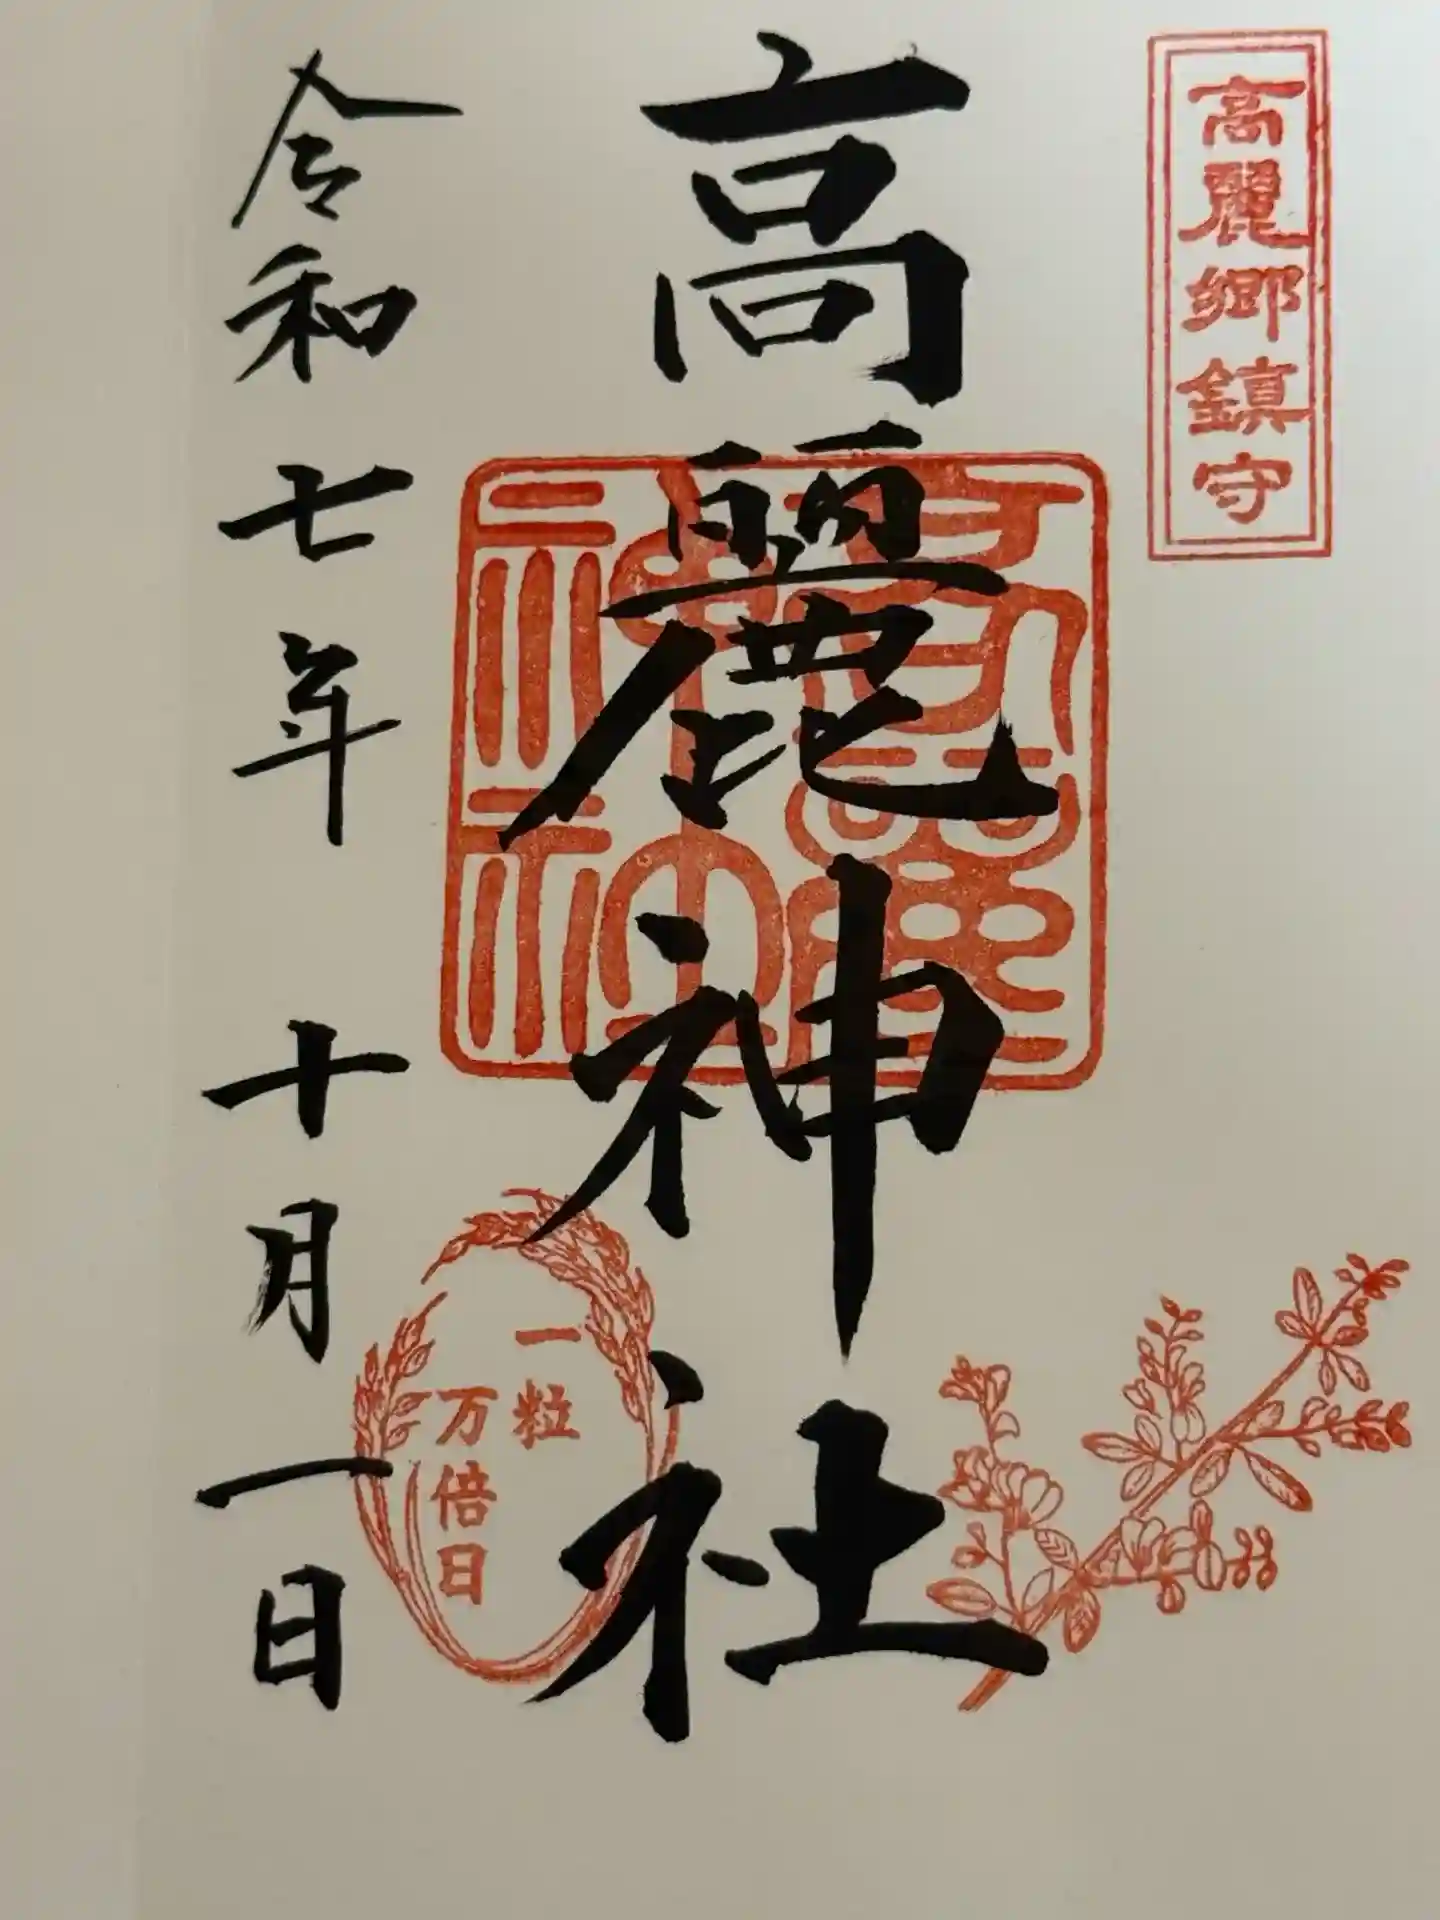 高麗郷鎮守
高麗神社
高麗
神社
一粒
万倍日
令和七年 十月一日